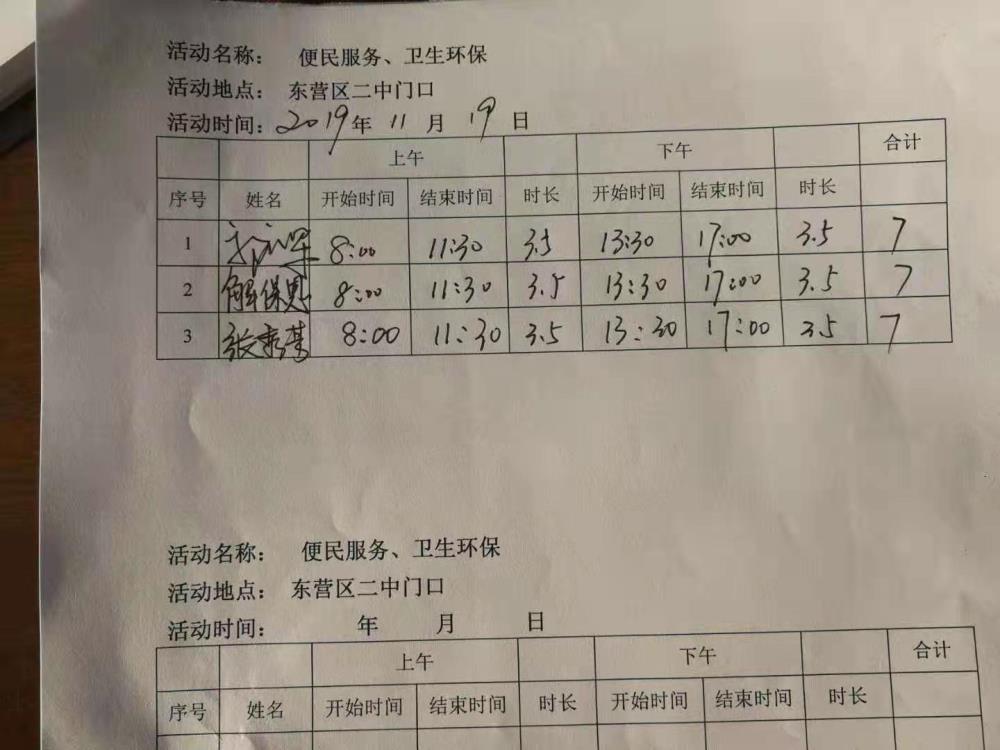 活动名称： 便民服务、卫生环保
活动地点： 东营区二中门口
活动时间：2019年 11 月 19 日
上午 下午 合计
序号 姓名 开始时间 结束时间 时长 开始时间 结束时间 时长
1 8:00 11:30 3.5 13:30 17:00 3.5 7
2 解保恩 8:00 11:30 3.5 13:30 17:00 3.5 7
3 张秀 8:00 11:30 3.5 13:30 17:00 3.5 7
活动名称： 便民服务、卫生环保
活动地点： 东营区二中门口
活动时间： 年 月 日
上午 下午 合计
序号 姓名 开始时间 结束时间 时长 开始时间 结束时间 时长